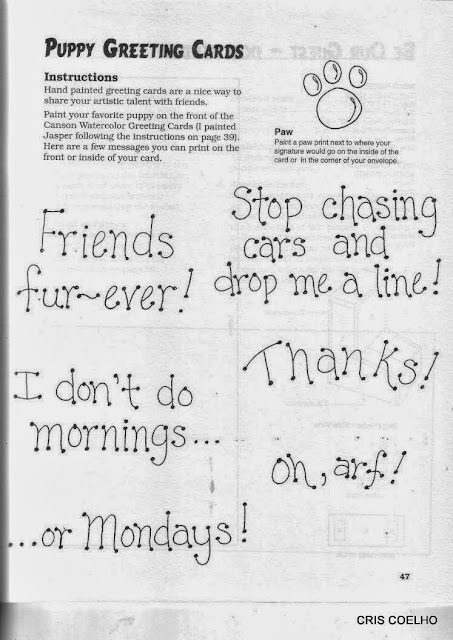 PUPPY GREETING CARDS
Instructions
Hand painted greeting cards are a nice way to
share your artistic talent with friends.
Paint your favorite puppy on the front of the
Canson Watercolor Greeting Cards (I painted
Jasper following the instructions on page 39).
Here are a few messages you can print on the
front or inside of your card.
Paw
Paint a paw print next to where your
signature would go on the inside of the
card or in the corner of your envelope.
Friends
fur~ever!
Stop chasing
cars and
drop me a line!
Thanks!
I don't do
mornings...
oh, arf!
...or Mondays!
47
CRIS COELHO